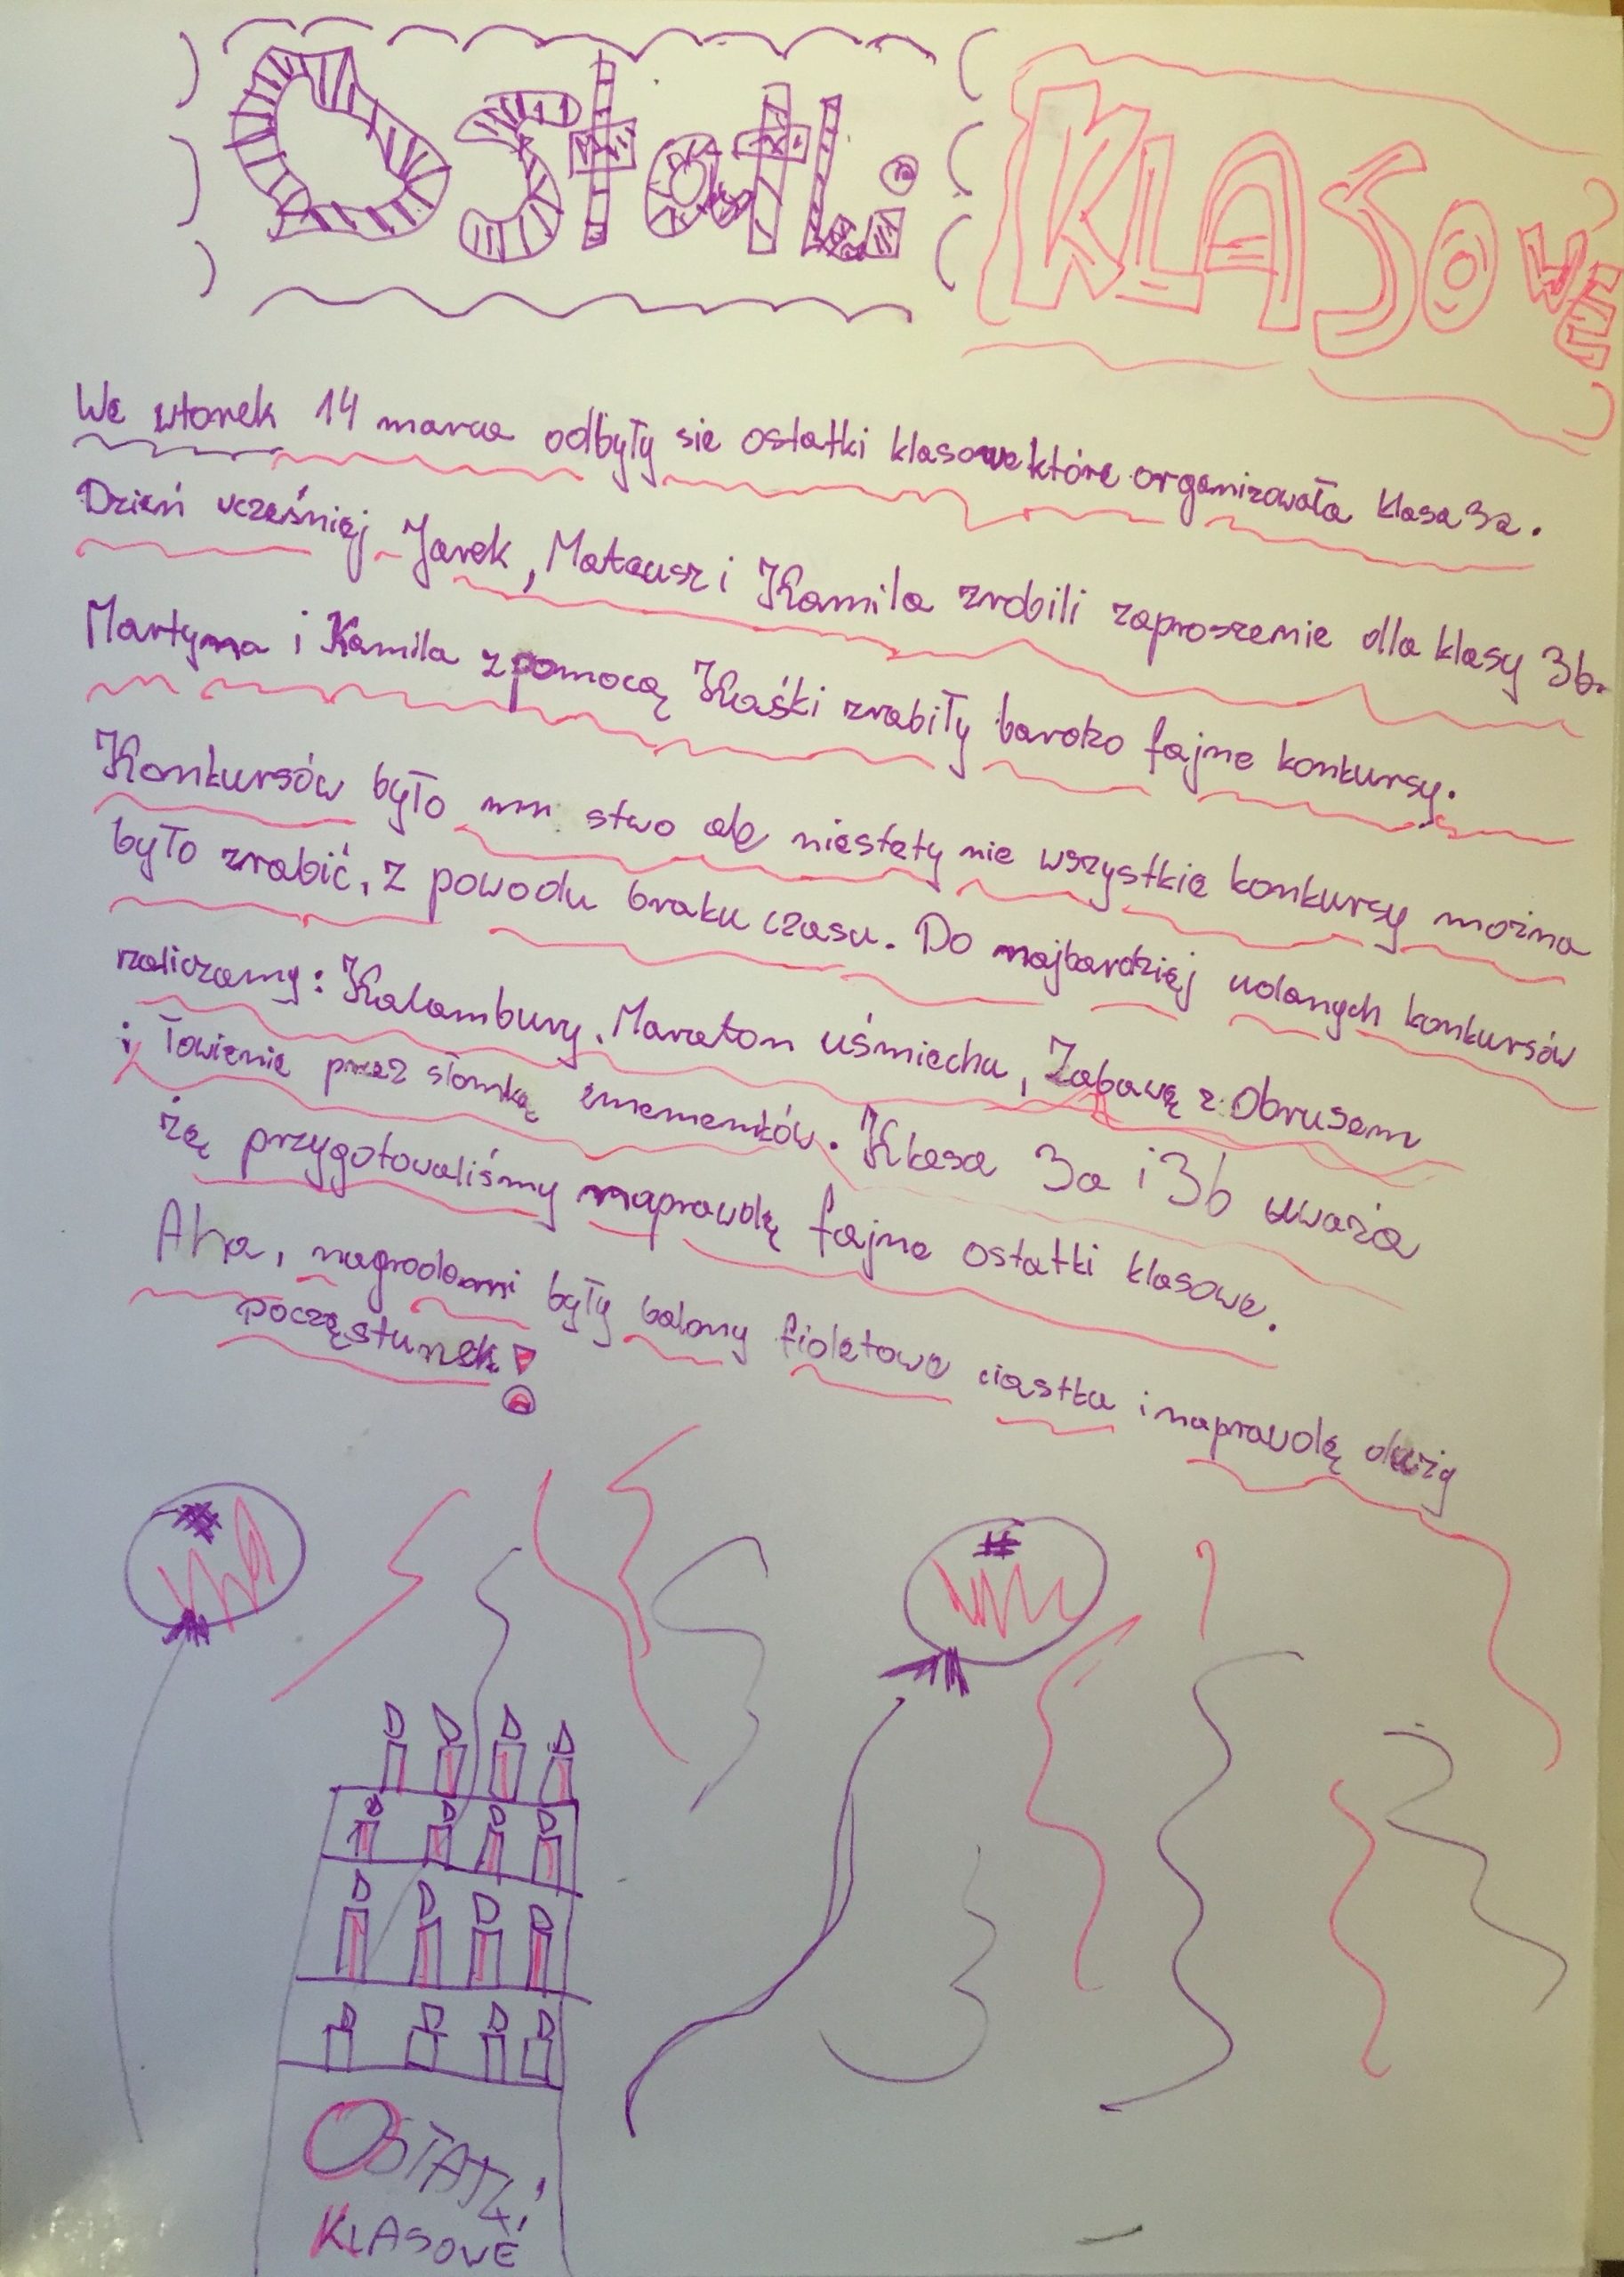 Ostatki KLASOWE
We wtorek 14 marca odbyły sie ostatki klasowe które organizowała klasa 3a.
Dzień wcześniej Jarek, Mateusz i Kamila zrobili zaproszenie dla klasy 3b.
Martyna i Kamila z pomocą Kaśki zrobiły bardzo fajne konkursy.
Konkursów było mn stwo ale niestety nie wszystkie konkursy można
było zrobić, z powodu braku czasu. Do najbardziej udanych konkursów
zaliczamy: Kalambury, Maraton uśmiechu, Zabawę z Obrusem
i Łowienie przez słomkę Klasa 3a i 3b uważa
żę przygotowaliśmy naprawdę fajne ostatki klasowe.
Aha, nagrodami były balony fioletowe ciastka i naprawdę duży
poczęstunek!
OSTATKI
KLASOWE